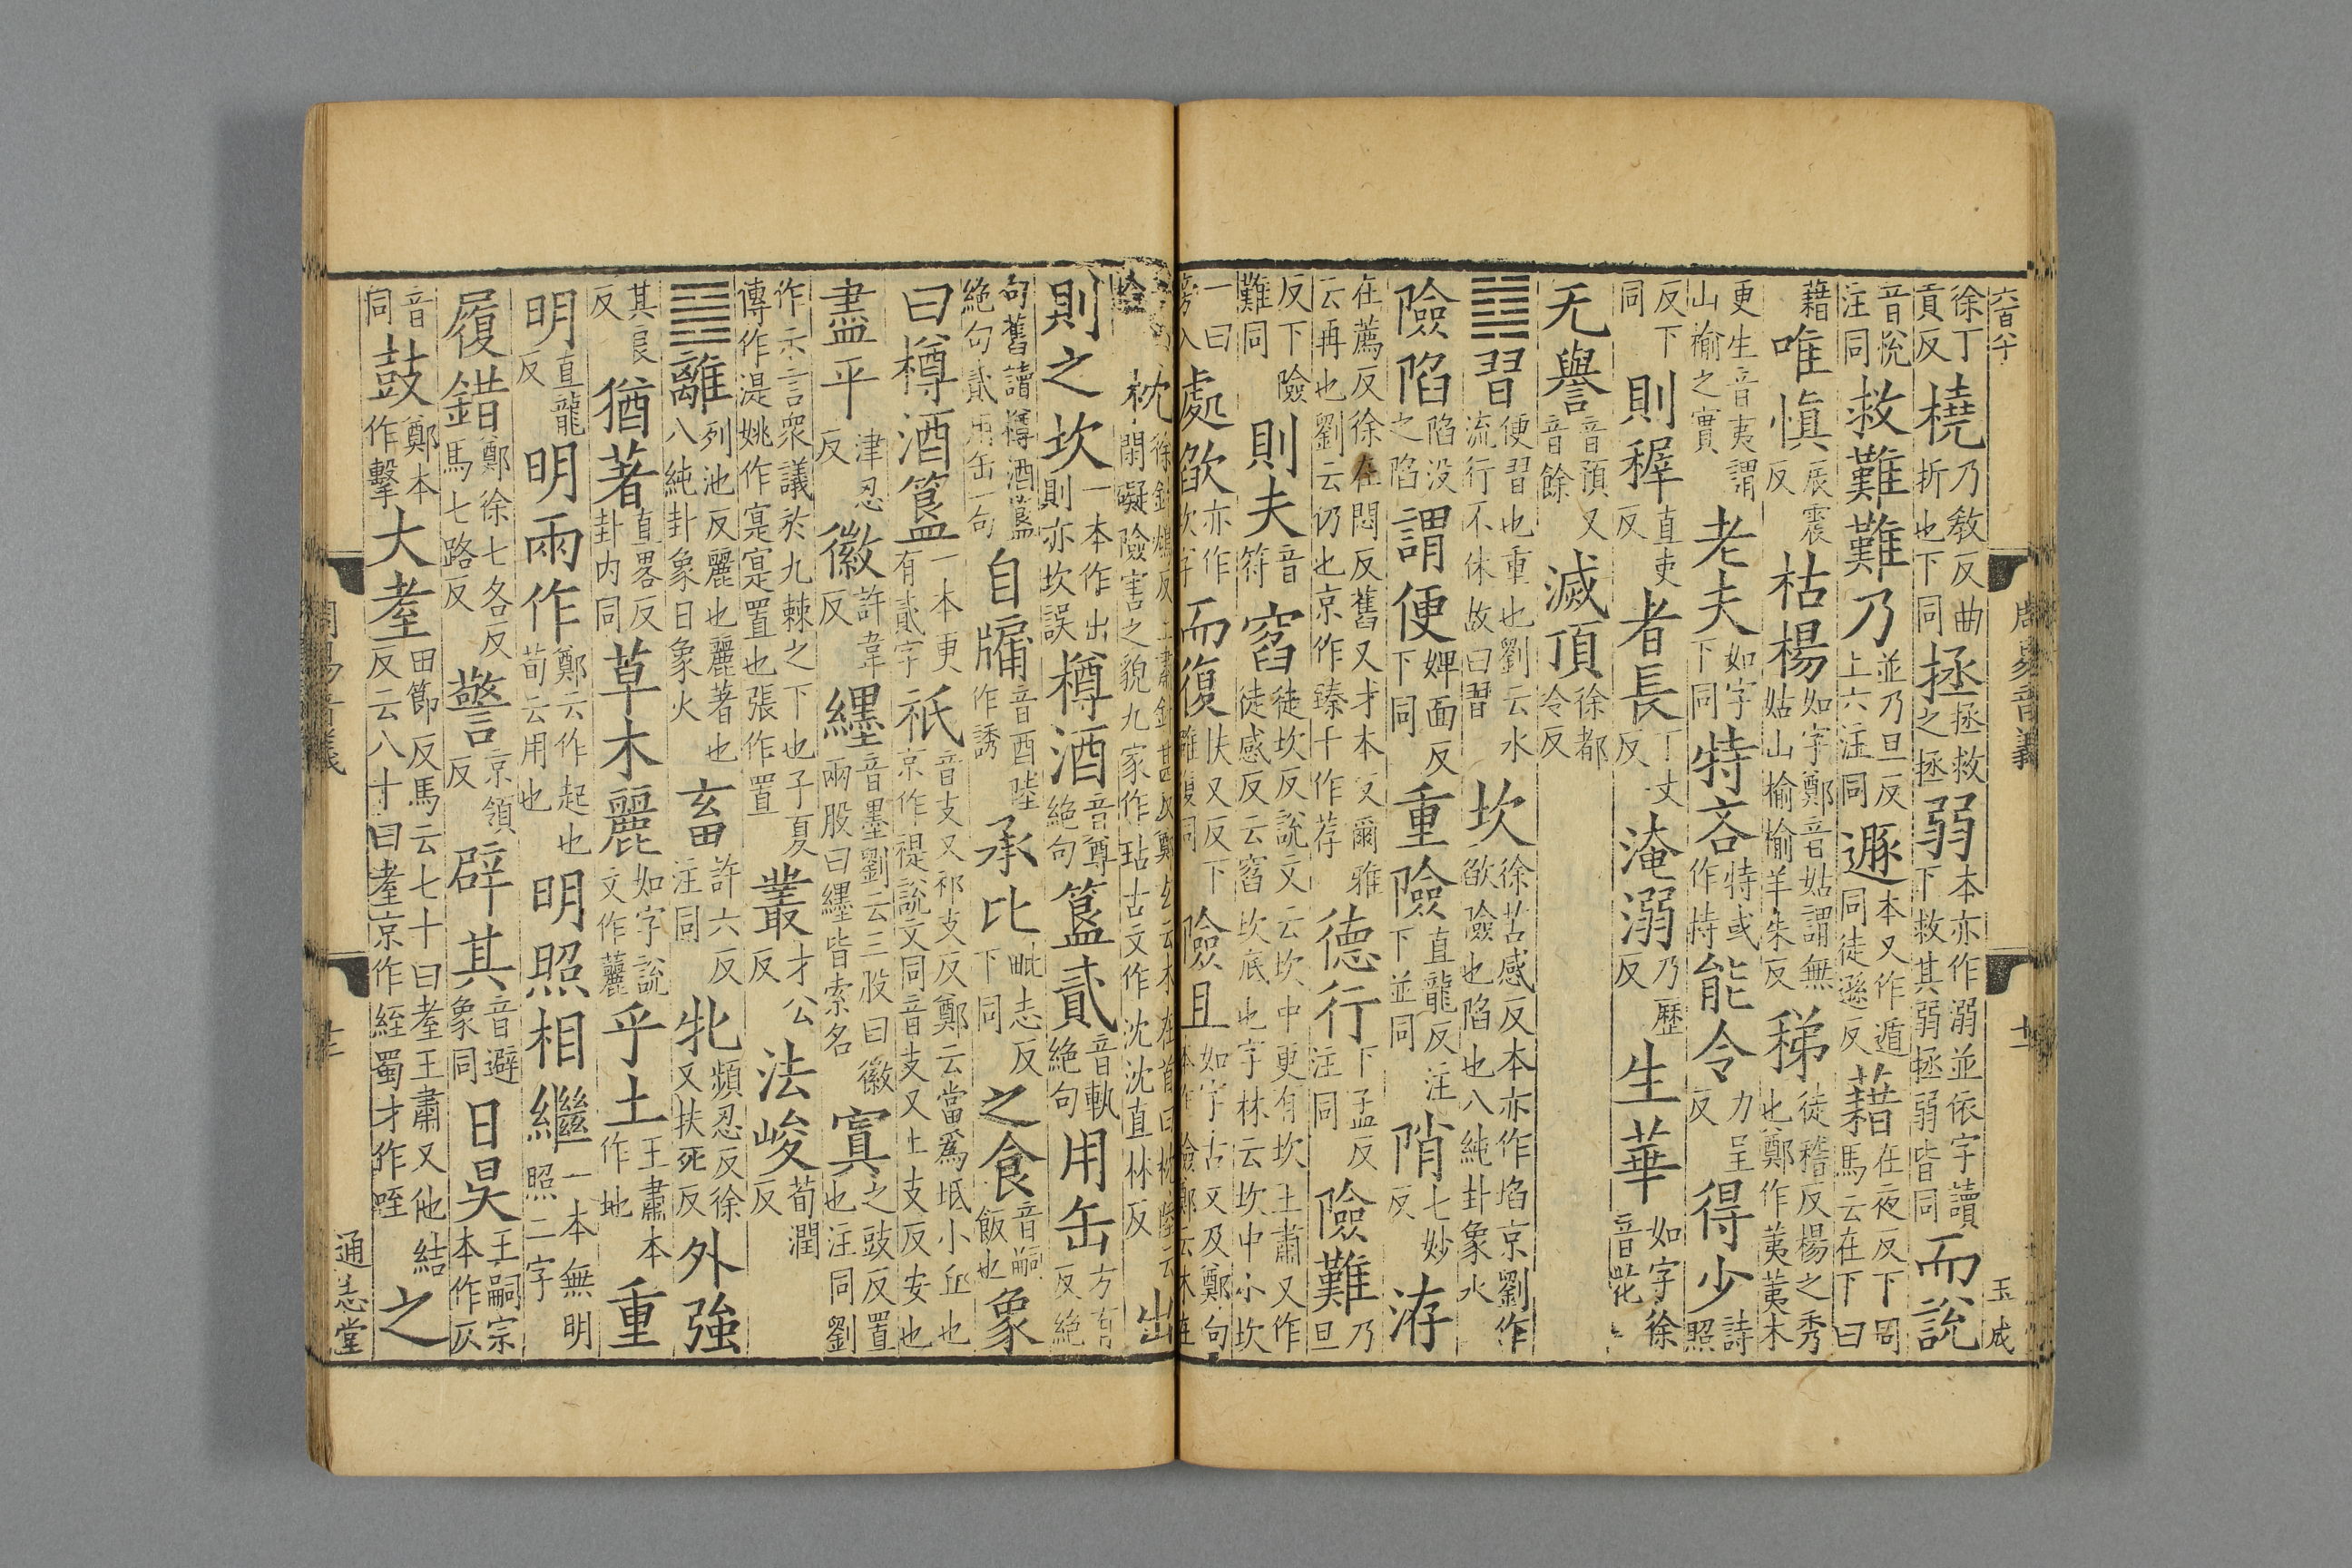 徐丁貢反橈乃敎反曲折也下同拯拯救之拯弱本亦作溺並依字讀下救其弱拯弱皆同而說
音悅注同救難難乃並乃旦反上六注同遯本又作遁同徒遜反藉在夜反下同馬云在下曰
藉唯愼辰震反枯楊如字鄭音姑謂無姑山榆榆羊朱反稊徒稽反楊之秀也鄭作荑荑木
更生音夷謂山榆之實老夫如字下同特吝特或作持能令力呈反得少詩照
反下同則稺直吏反者長丁丈反淹溺乃歷反生華如字徐音花
无譽音預又音餘滅頂徐都令反
䷜習便習也重也劉云水流行不休故曰習坎徐苦感反本亦作埳京劉作欿險也陷也八純卦象水
險陷陷没之陷謂便婢面反下同重險直龍反注下並同陗七妙反洊
在薦反徐在悶反舊又才本反爾雅云再也劉云仍也京作臻干作荐德行下孟反注同險難乃旦
反下險難同則夫音符窞徒坎反說文云坎中更有坎王肅又作徒感反云窞坎底也字林云坎中小坎
一曰旁入處欿亦作坎字而復扶又反下雖復同險且如字古又及鄭向本作檢鄭云木在
枕徐針鴆反王肅針甚反鄭玄云木在首曰枕陸云閑礙險害之貌九家作玷古文作沈沈直林反出
則之坎一本作出則亦坎誤樽酒音尊絶句簋貳音軌絶句用缶方有反絶
句舊讀樽酒簋絶句貳用缶一句自牖音酉陸作誘承比毗志反下同之食音嗣飯也象
曰樽酒簋一本更有貳字祇音支又祁支反鄭云當爲坻小丘也京作禔說文同音支又上支反安也
盡平津忍反徽許韋反纆音墨劉云三股曰徽兩股曰纆皆索名寘之豉反置也注同劉
作示言衆議於九棘之下也子夏傳作湜姚作寔寔置也張作置叢才公反法峻荀潤反
䷝離列池反麗也麗著也八純卦象日象火畜許六反注同牝頻忍反徐又扶死反外強
其良反猶著直畧反卦内同草木麗如字說文作䴡乎土王肅本作地重
明直龍反明兩作鄭云作起也荀云用也明照相繼一本無明照二字
履錯鄭徐七各反馬七路反警京領反辟其音避象同日昃王嗣宗本作仄
音同鼓鄭本作擊大耋田節反馬云七十曰耋王肅又他結反云八十曰耋京作絰蜀才作咥之
通志堂